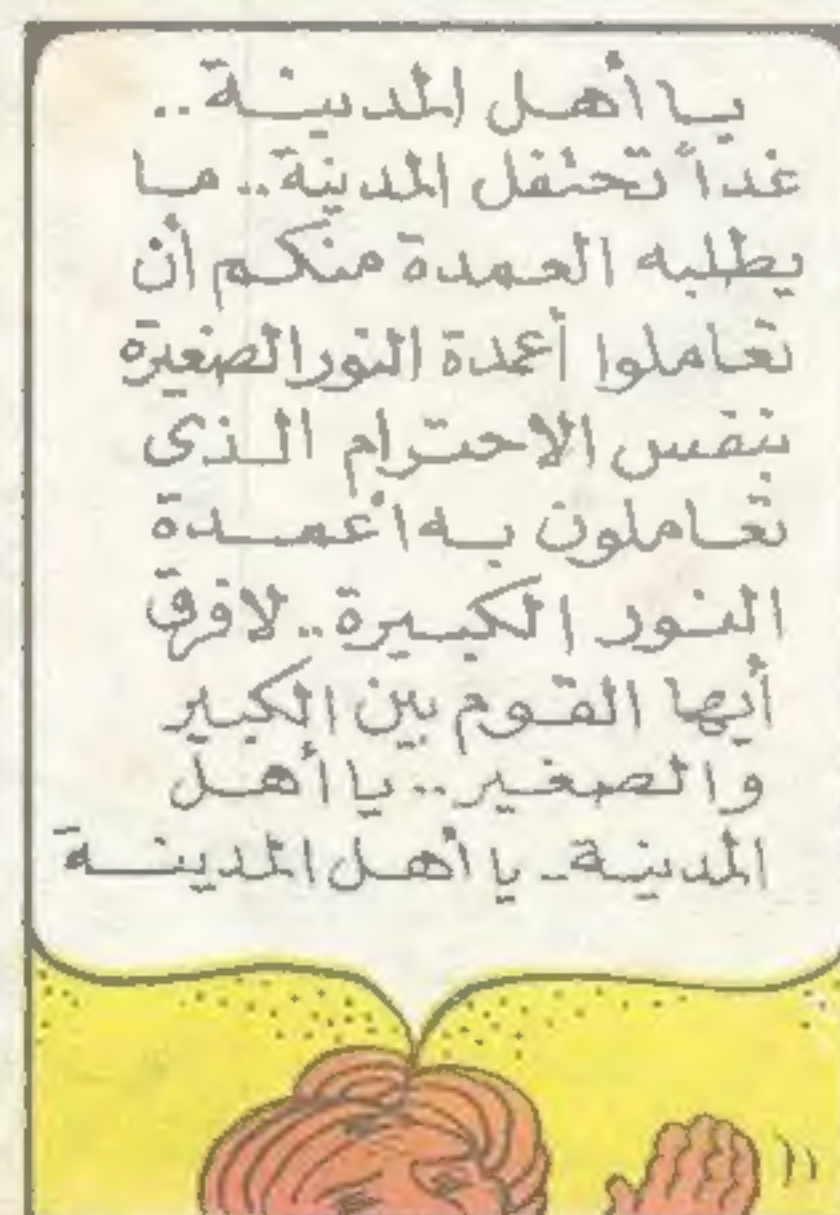 يا أهل المدينة..
غداً تحتفل المدينة.. ما
يطلبه العمدة منكم أن
تعاملوا أعمدة النور الصغيرة
بنفس الاحترام الذى
تعاملون به أعمدة
النور الكبيرة.. لا فرق
أيها القوم بين الكبير
والصغير.. يا أهل
المدينة.. يا أهل المدينة